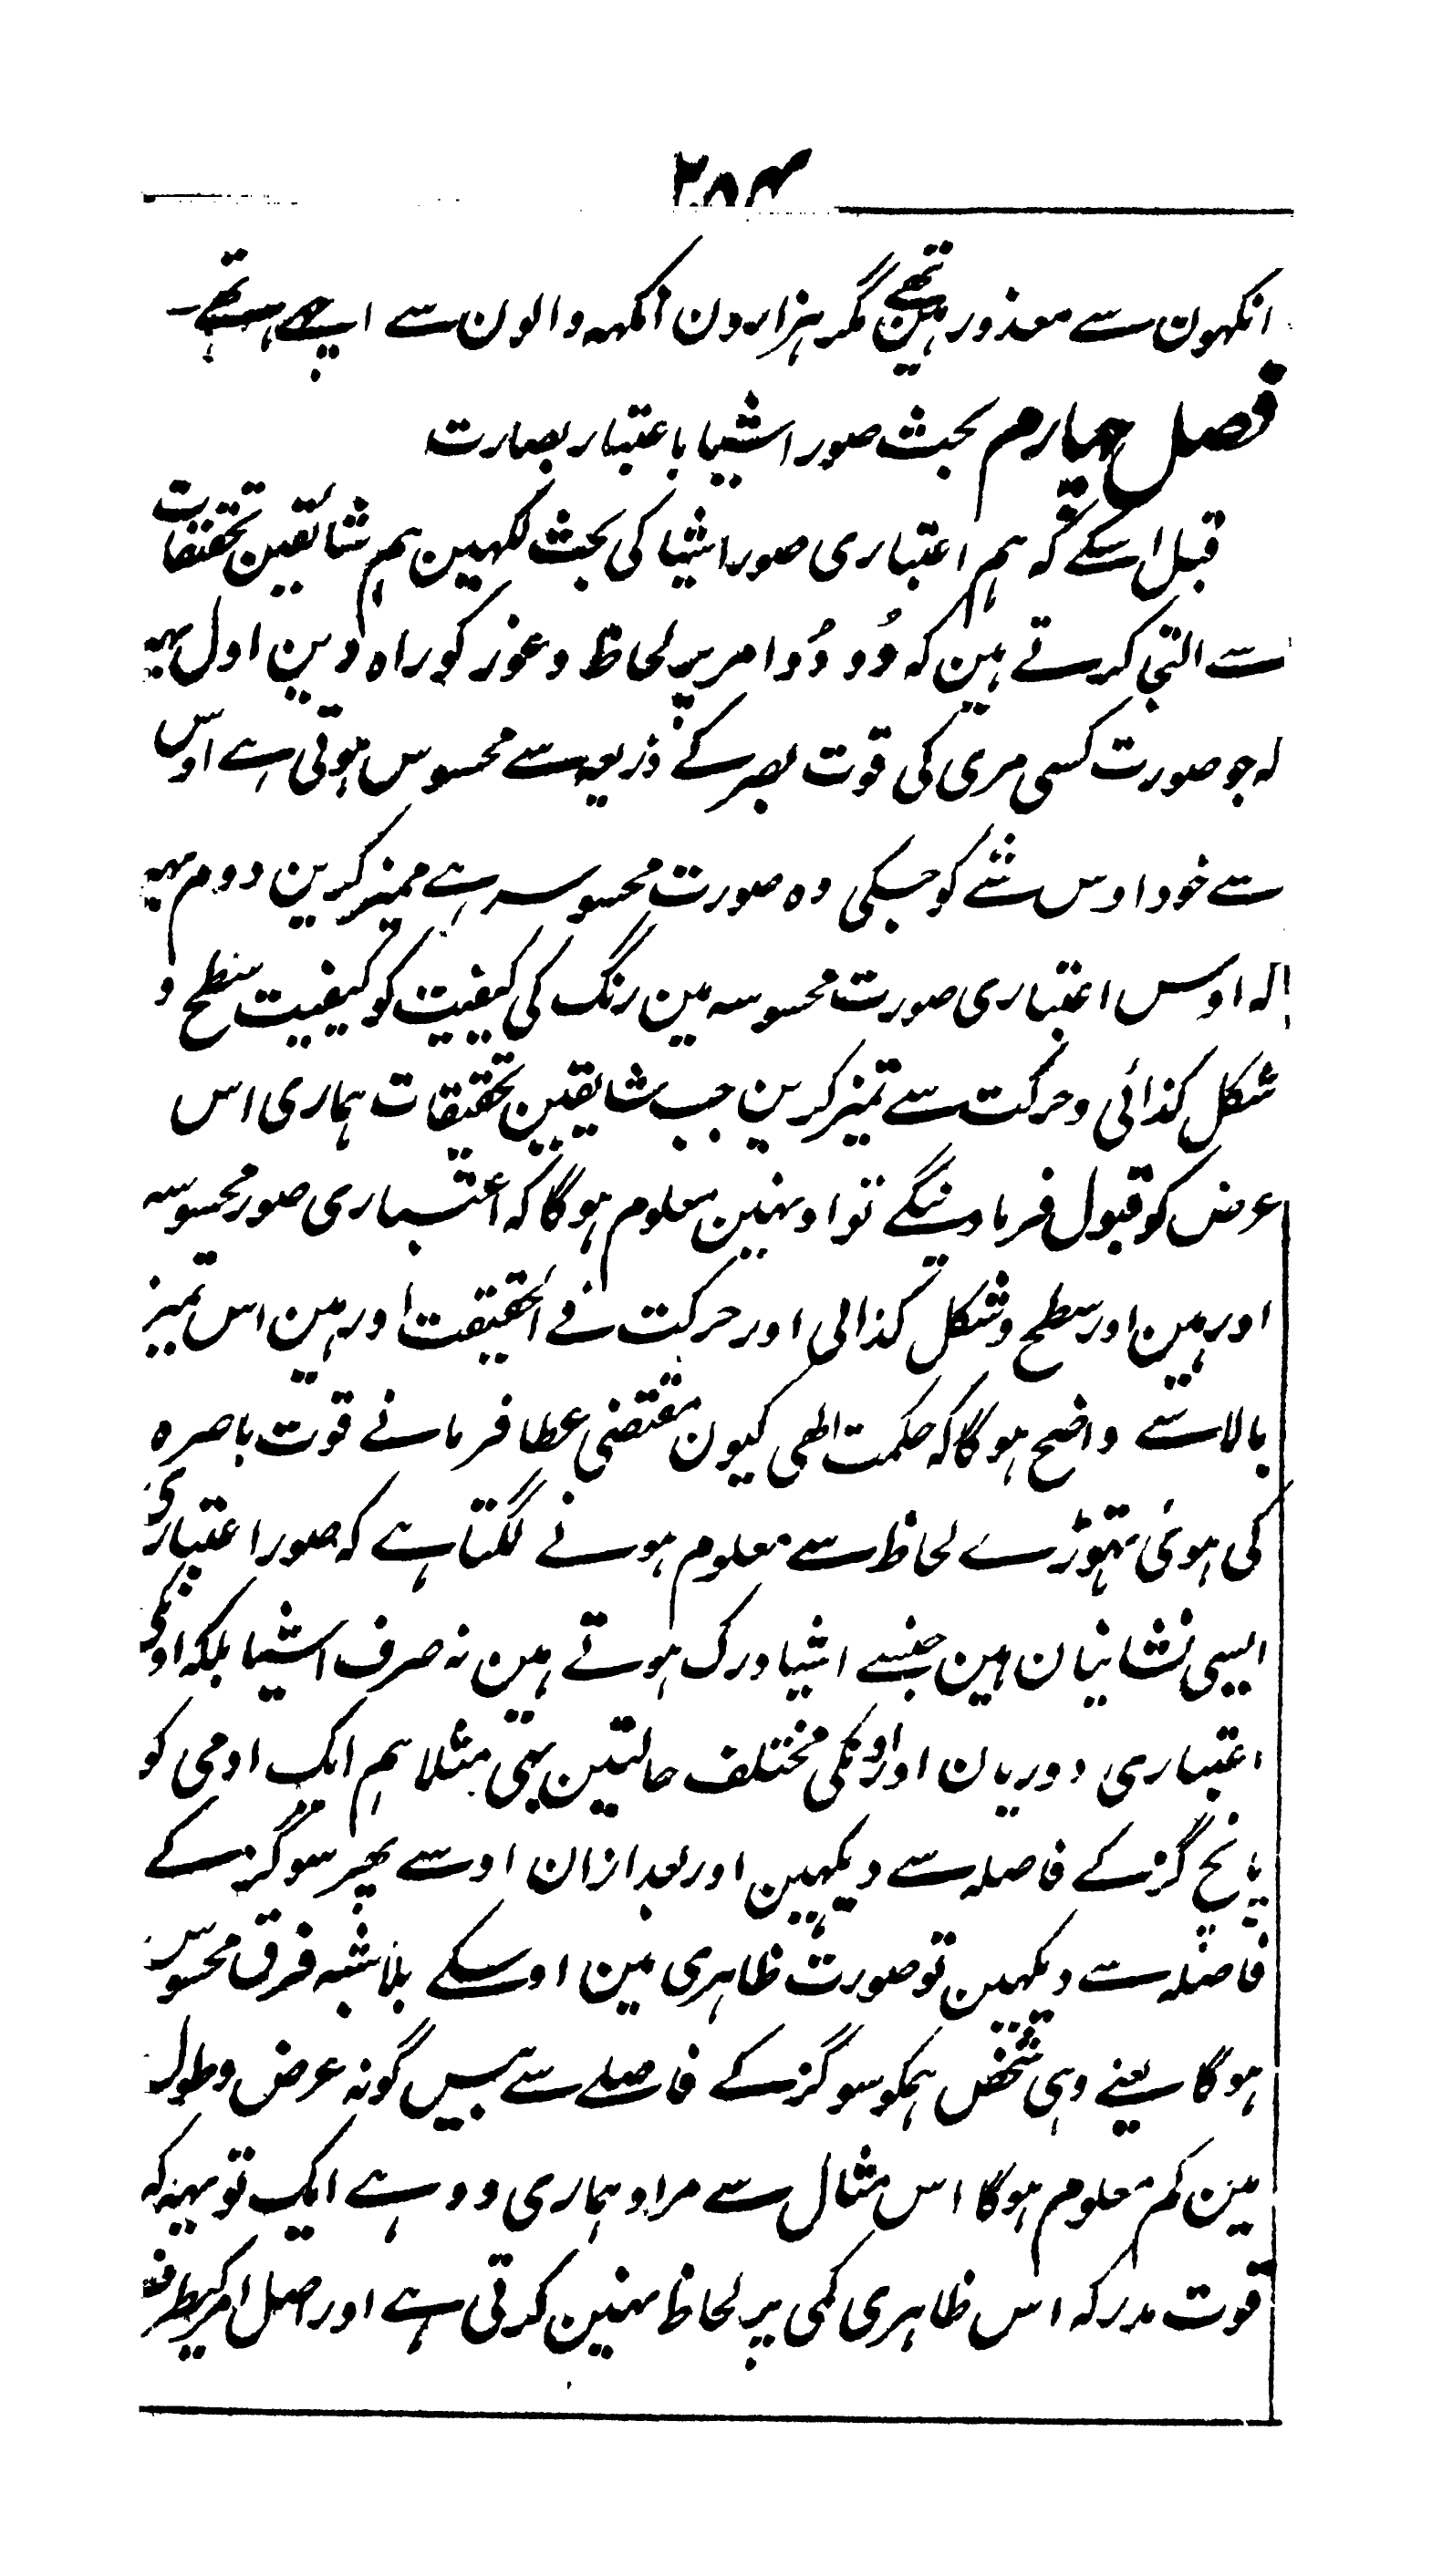 ۲۵۴
انکہون سے معذور ہین تھے مگر ہزارون انکہہ والون سے اچھے تھے
فصل چہارم بحث صور اشیا باعتبار بصارت
قبل اسکے کہ ہم اعتباری صور اشیا کی بحث لکہین ہم شائقین تحقیقات
سے التجی کرتے ہین کہ وُہ دُو امر پر لحاظ و غور کو راہ دین اول یہہ
کہ جو صورت کسی مری کی قوت بصر کے ذریعہ سے محسوس ہوتی ہے اوس
سے خود اوس شے کو جسکی وہ صورت محسوسہ ہے ممیز کرین دوم یہہ
کہ اوس اعتباری صورت محسوسہ مین رنگ کی کیفیت کو کیفیت سطح و
شکل کذائی و حرکت سے تمیز کرین جب شایقین تحقیقات ہماری اس
عرض کو قبول فرماوینگے تو اونہین معلوم ہوگا کہ اعتباری صور محسوسہ
اور ہین اور سطح و شکل کذالی اور حرکت فے الحقیقت اور ہین اس تمیز
بالا سے واضح ہوگا کہ حکمت الٰہی کیون مقتضی عطا فرمانے قوت باصرہ
کی ہوئی تہوڑے لحاظ سے معلوم ہونے لگتا ہے کہ صور اعتباری
ایسی نشانیان ہین جنسے اشیا درک ہوتے ہین نہ صرف اشیا بلکہ اونکی
اعتباری دوریان اور اونکی مختلف حالتین بہی مثلا ہم ایک ادمی کو
پانچ گز کے فاصلہ سے دیکہین اور بعد ازان اوسے پھر سو گز کے
فاصلہ سے دیکہین تو صورت ظاہری مین اوسکے بلا شبہ فرق محسوس
ہوگا یعنے وہی شخص ہمکو سو گز کے فاصلے سے بیس گونہ عرض و طول
مین کم معلوم ہوگا اس مثال سے مراد ہماری دو ہے ایک تو یہہ کہ
قوت مدرکہ اس ظاہری کمی پر لحاظ نہین کرتی ہے اور اصل امر کیطرف